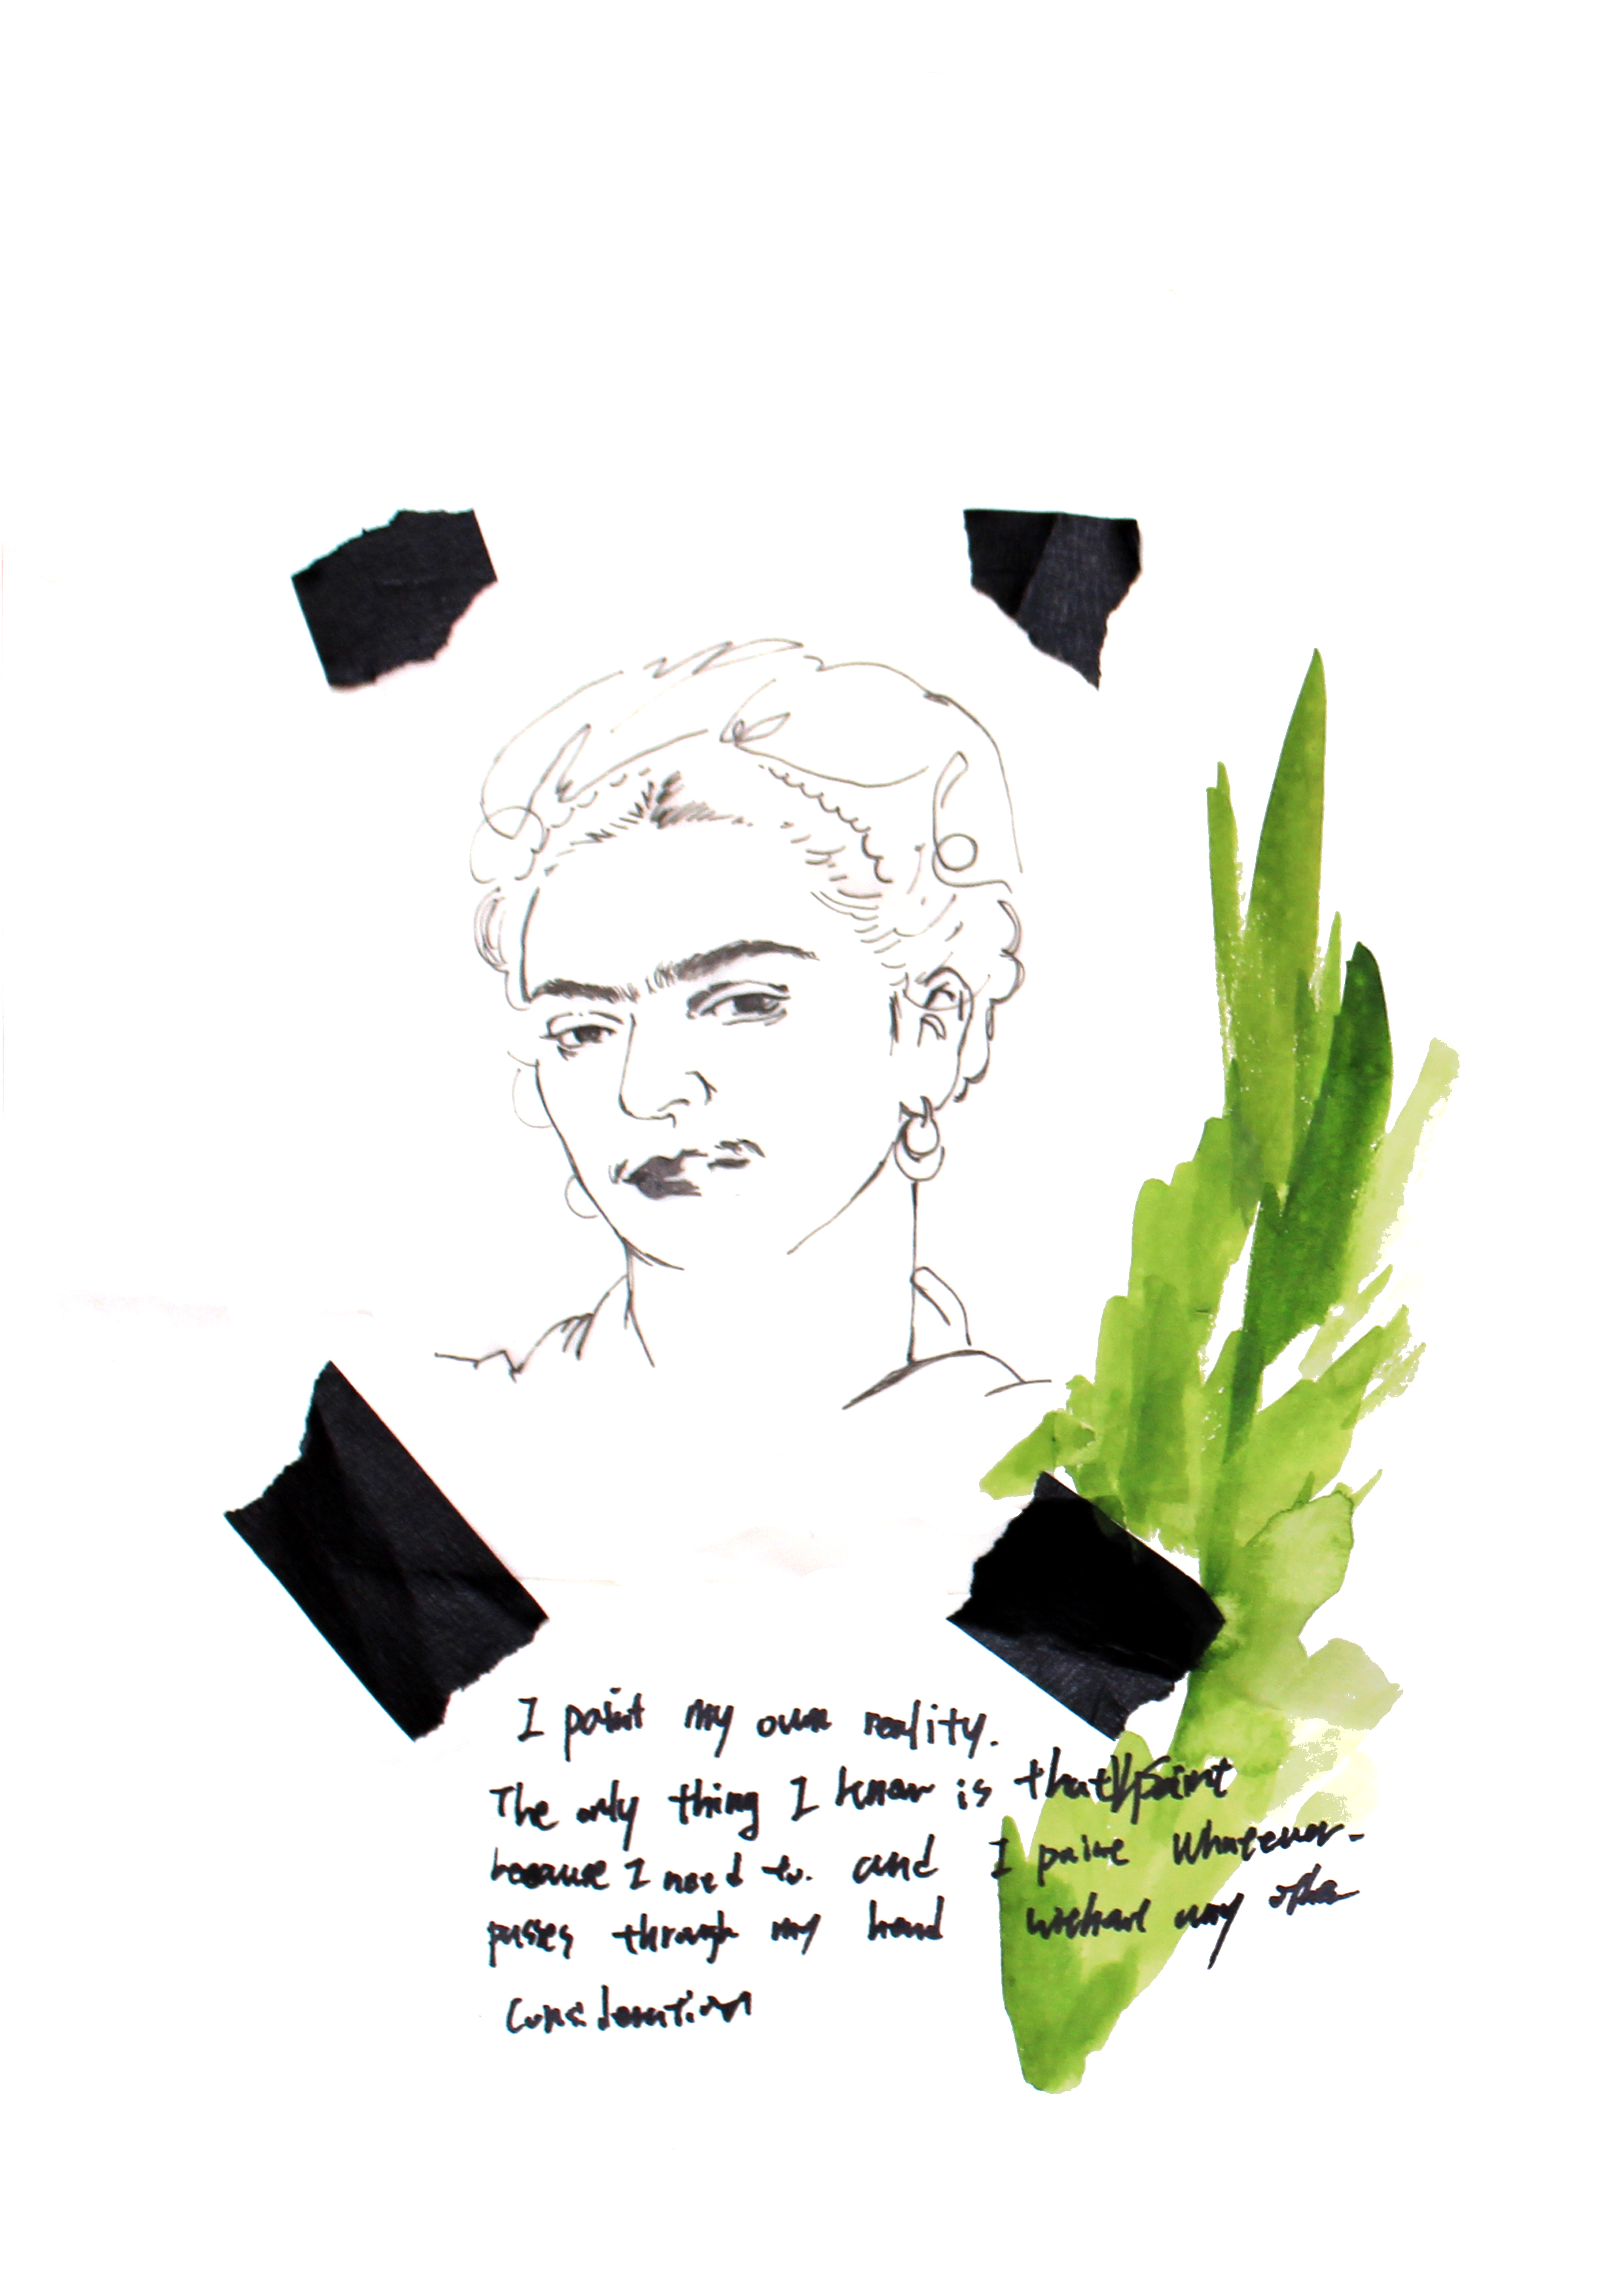 I paint my own reality.
The only thing I know is that I paint
because I need to. and I paint whatever
passes through my head without any other
consideration